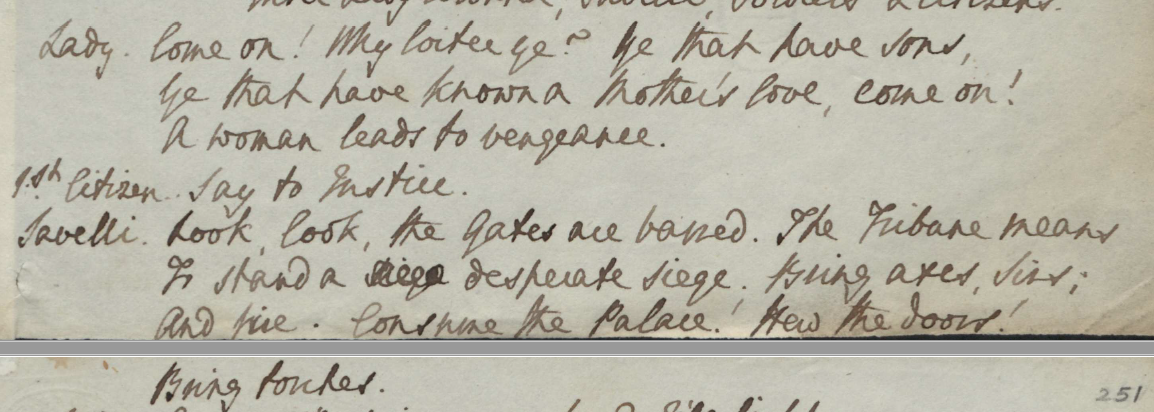 Soldiers & Citizens.
Lady. Come on! Why loiter ye? Ye that have sons,
Ye that have known a Mother's love, come on!
A woman leads to vengeance.
1.st Citizen. Say to Justice.
Savelli. Look, look, the Gates are barred. The Tribune means
To stand a siege desperate siege. Bring axes, Sirs;
And fire. Consume the Palace! Hew the doors!
Bring torches.
251